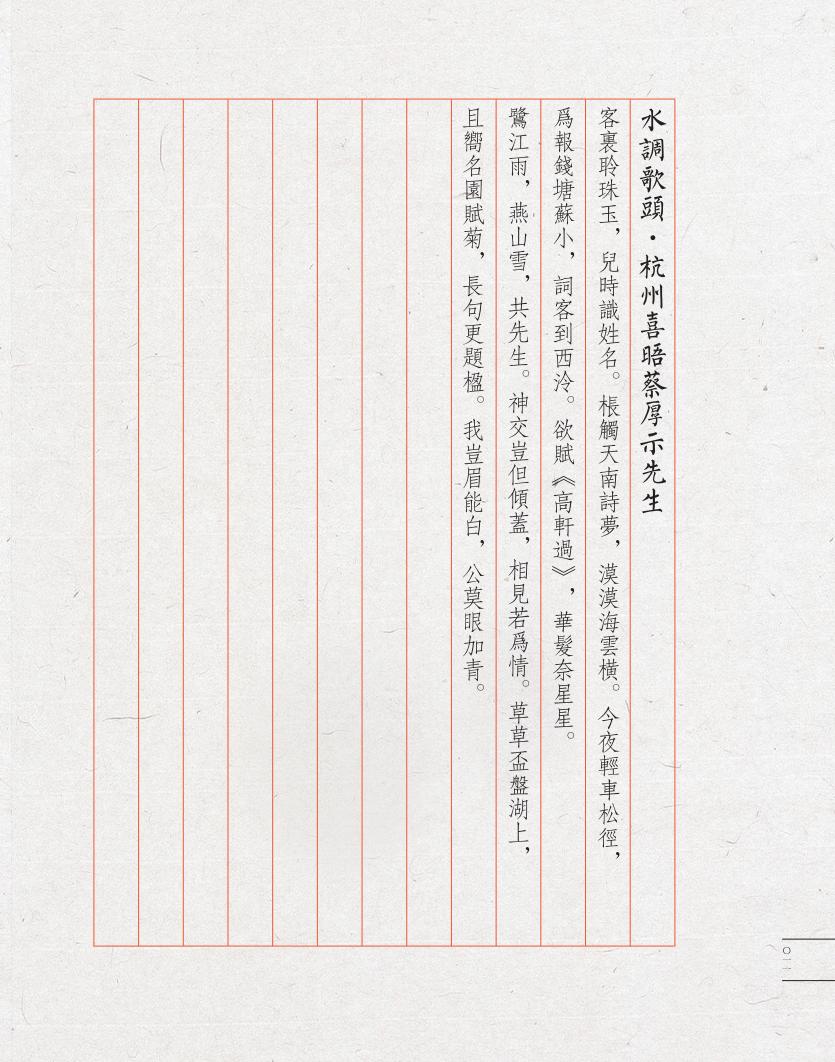 水調歌頭·杭州喜晤蔡厚示先生
客裏聆珠玉，兒時識姓名。棖觸天南詩夢，漠漠海雲橫。今夜輕車松徑，
爲報錢塘蘇小，詞客到西泠。欲賦《高軒過》，華髮奈星星。
鷺江雨，燕山雪，共先生。神交豈但傾蓋，相見若爲情。草草盃盤湖上，
且嚮名園賦菊，長句更題楹。我豈眉能白，公莫眼加青。
〇一一